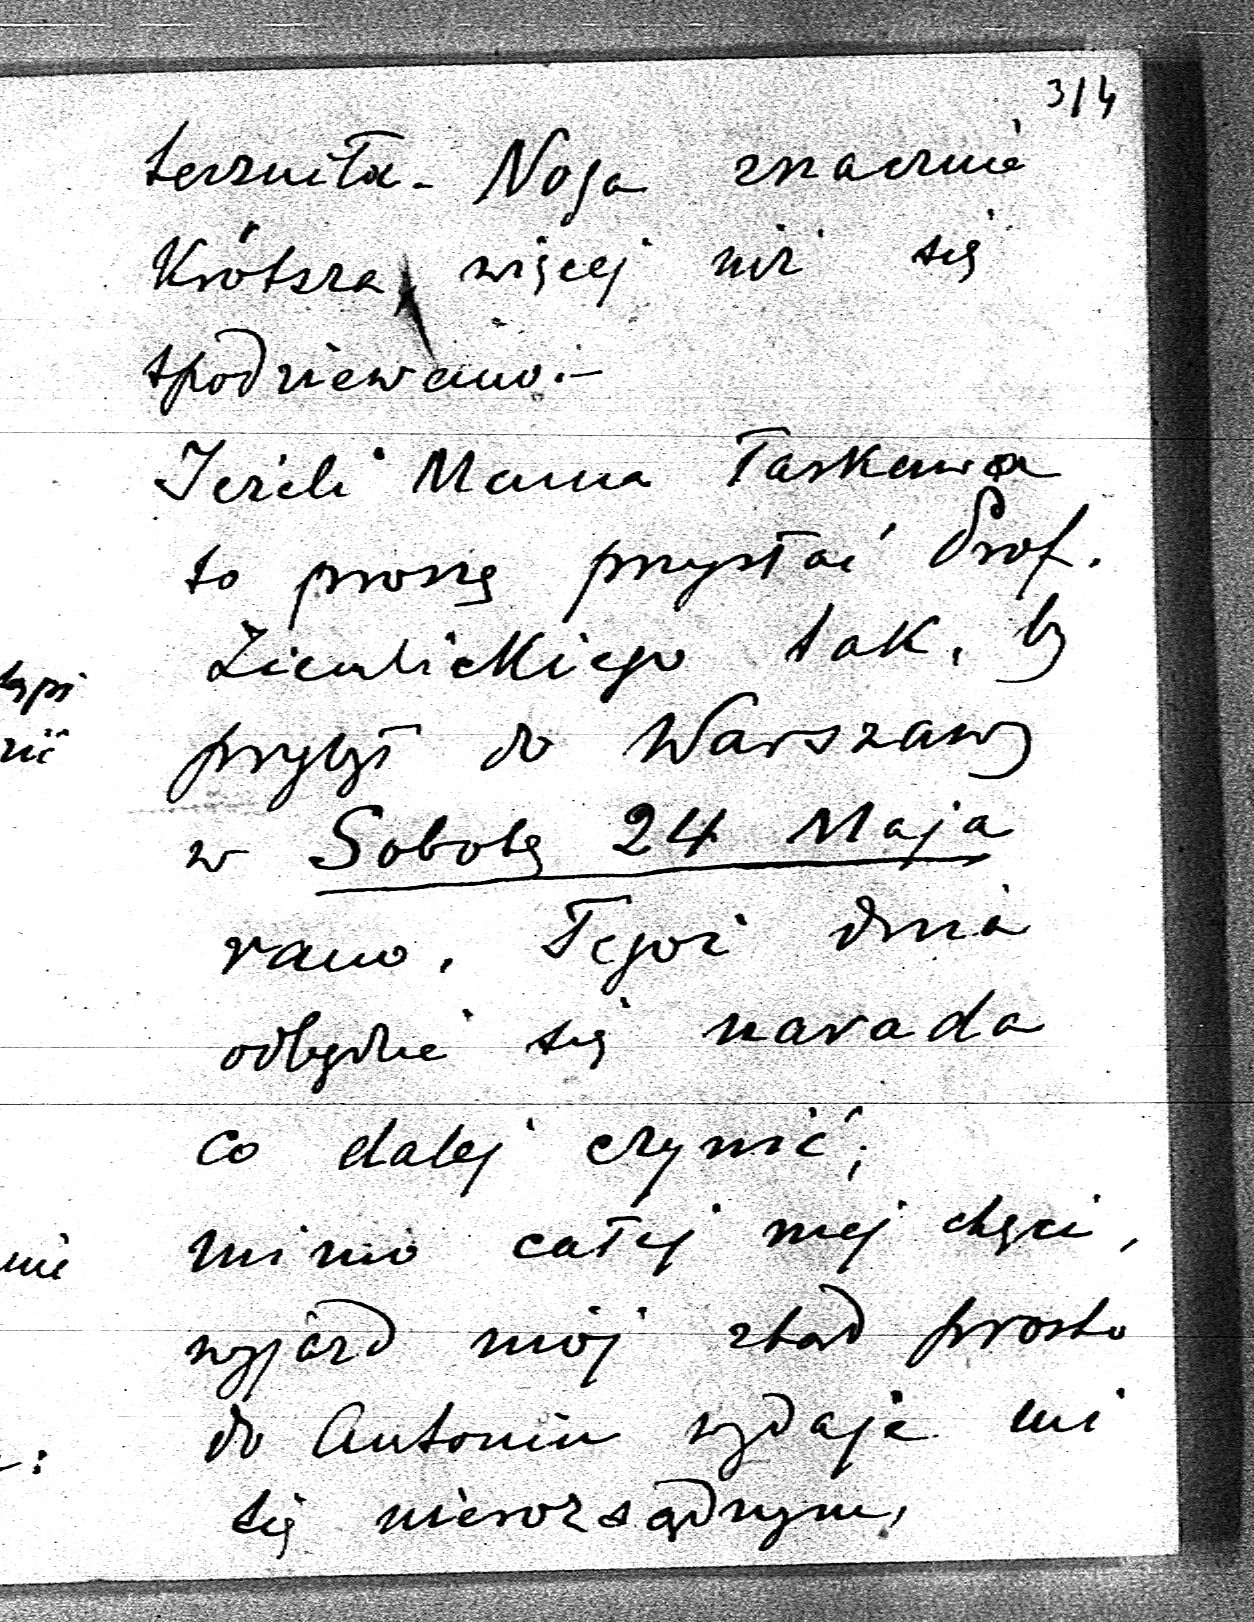 3/4
teczniła. Noga znacznie
Krótsza, więcej niż się
spodziewano.—
Jeżeli Mama łaskawa
to proszę przysłać Prof.
Ziemlickiego tak, by
przybył do Warszawy
w Sobotę 24 Maja
rano. Tegoż dnia
odbędzie się narada
co dalej czynić;
mimo całej mej chęci,
wyjazd mój ztąd prosto
do Antonin wydaje mi
się nierozsądnym,